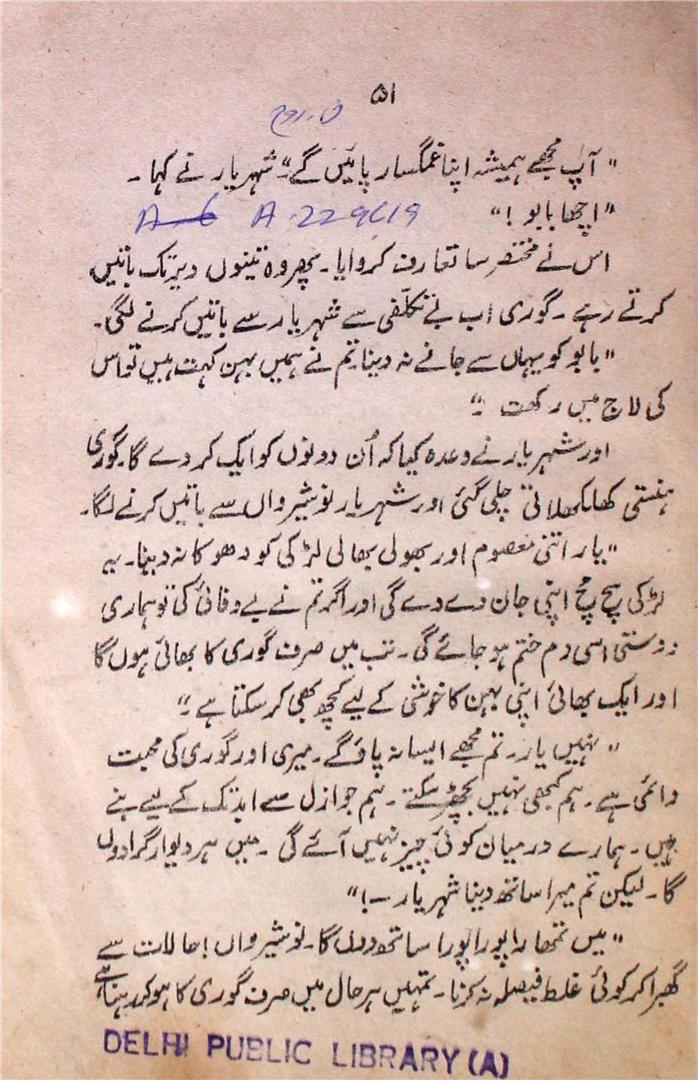 ۵۱
"آپ مجھے ہمیشہ اپنا غمگسار پائیں گے۔" شہریار نے کہا۔
"اچھا بابو!"
A 229619
اس نے مختصر سا تعارف کروایا۔ پھر وہ تینوں دیر تک باتیں
کرتے رہے۔ گوری اب بے تکلفی سے شہریار سے باتیں کرنے لگی۔
"بابو کو یہاں سے جانے نہ دینا۔ تم نے ہمیں بہن کہت ہیں تو اس
کی لاج میں رکھت۔"
اور شہریار نے وعدہ کیا کہ اُن دونوں کو ایک کر دے گا۔ گوری
ہنستی کھلکھلاتی چلی گئی اور شہریار نوشیرواں سے باتیں کرنے لگا۔
"یار اتنی معصوم اور بھولی بھالی لڑکی کو دھوکا نہ دینا۔ یہ
لڑکی سچ مچ اپنی جان دے دے گی اور اگر تم نے بے وفائی کی تو ہماری
دوستی اسی دم ختم ہو جائے گی۔ تب میں صرف گوری کا بھائی ہوں گا
اور ایک بھائی اپنی بہن کا خوشی کے لیے کچھ بھی کر سکتا ہے۔"
"نہیں یار۔ تم مجھے ایسا نہ پاؤ گے۔ میری اور گوری کی محبت
دائمی ہے۔ ہم کبھی نہیں بچھڑ سکتے۔ ہم جو ازل سے ابد تک کے لیے بنے
ہیں۔ ہمارے درمیان کوئی چیز نہیں آئے گی۔ میں ہر دیوار گرا دوں
گا۔ لیکن تم میرا ساتھ دینا شہریار—!"
"میں تمھارا پورا پورا ساتھ دوں گا۔ نوشیرواں! حالات سے
گھبرا کر کوئی غلط فیصلہ نہ کرنا۔ تمہیں ہر حال میں صرف گوری کا ہو کر رہنا ہے
DELHI PUBLIC LIBRARY (A)